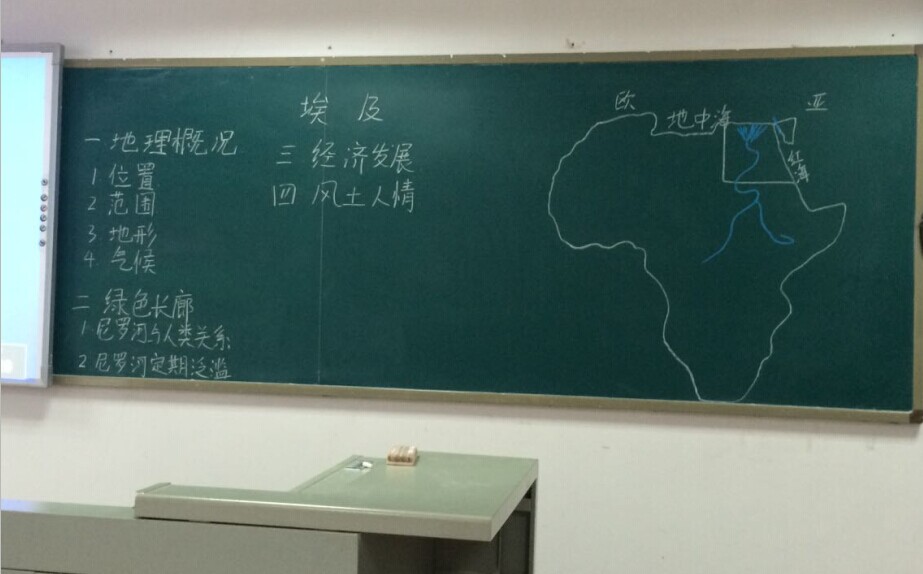 埃及
一 地理概况
1 位置
2 范围
3. 地形
4. 气候
二 绿色长廊
1 尼罗河与人类关系
2 尼罗河定期泛滥
三 经济发展
四 风土人情
欧
地中海
亚
红海